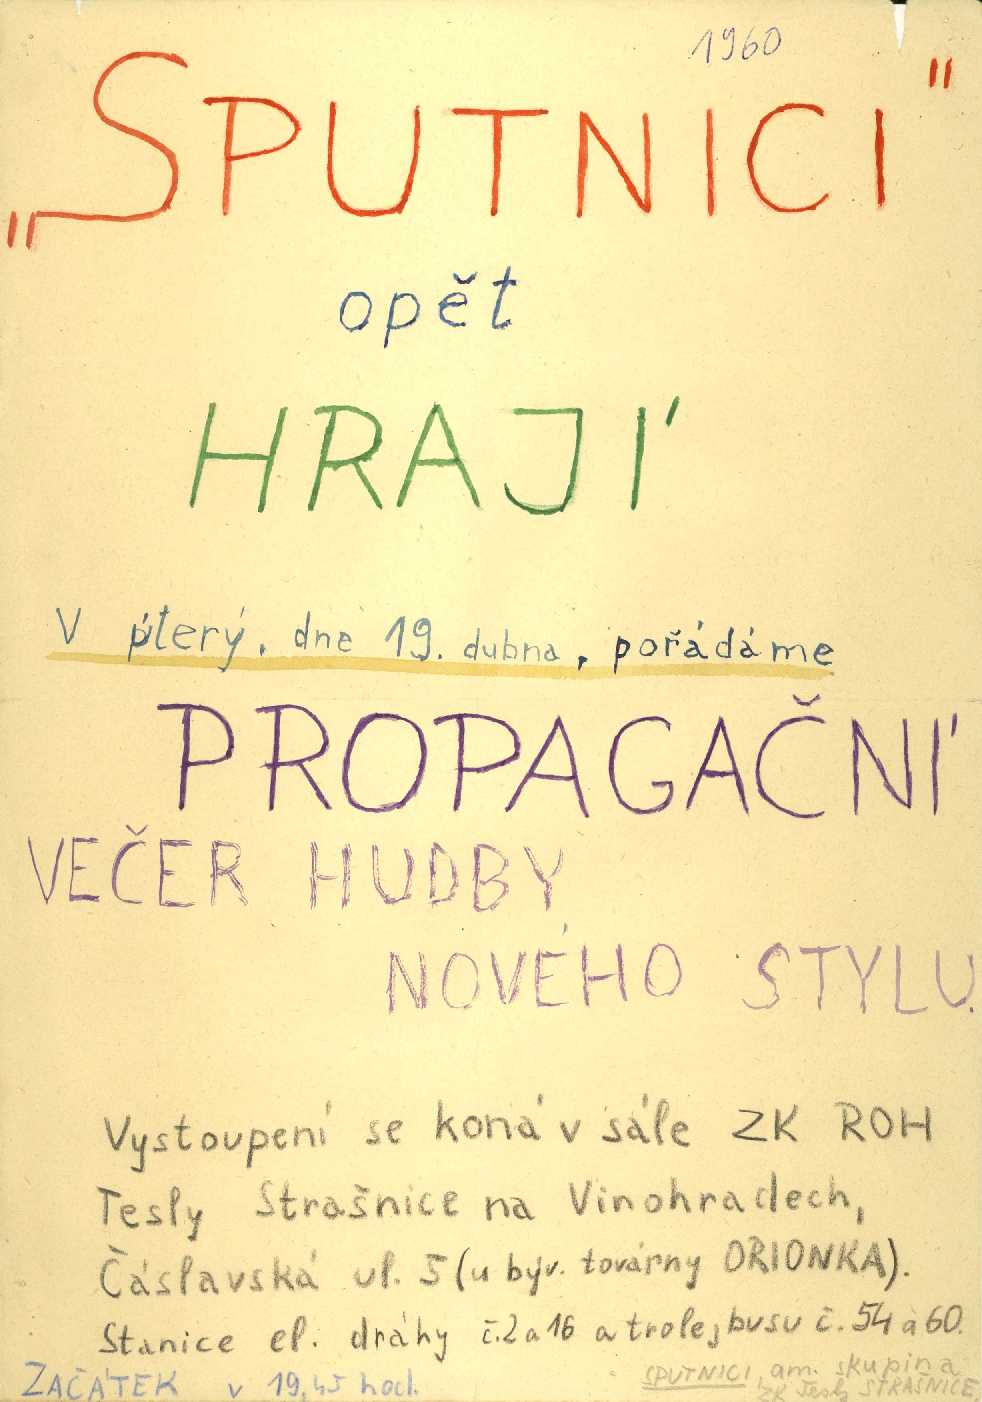 1960
„SPUTNICI"
opět
HRAJÍ
V úterý, dne 19. dubna, pořádáme
PROPAGAČNÍ
VEČER HUDBY
NOVÉHO STYLU.
Vystoupení se koná v sále ZK ROH
Tesly Strašnice na Vinohradech,
Čáslavská ul. 5 (u býv. továrny ORIONKA).
Stanice el. dráhy č.2 a 16 a trolejbusu č. 54 a 60.
ZAČÁTEK v 19,45 hod.
SPUTNICI, am. skupina
ZK Tesly STRAŠNICE,